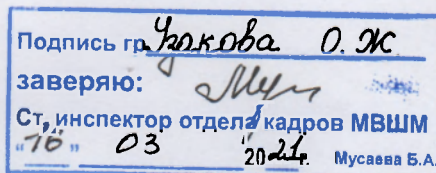 Подпись гр. Узокова О. Ж
заверяю:
Ст, инспектор отдела кадров МВШМ
"16" 03 2021г. Мусаева Б.А.